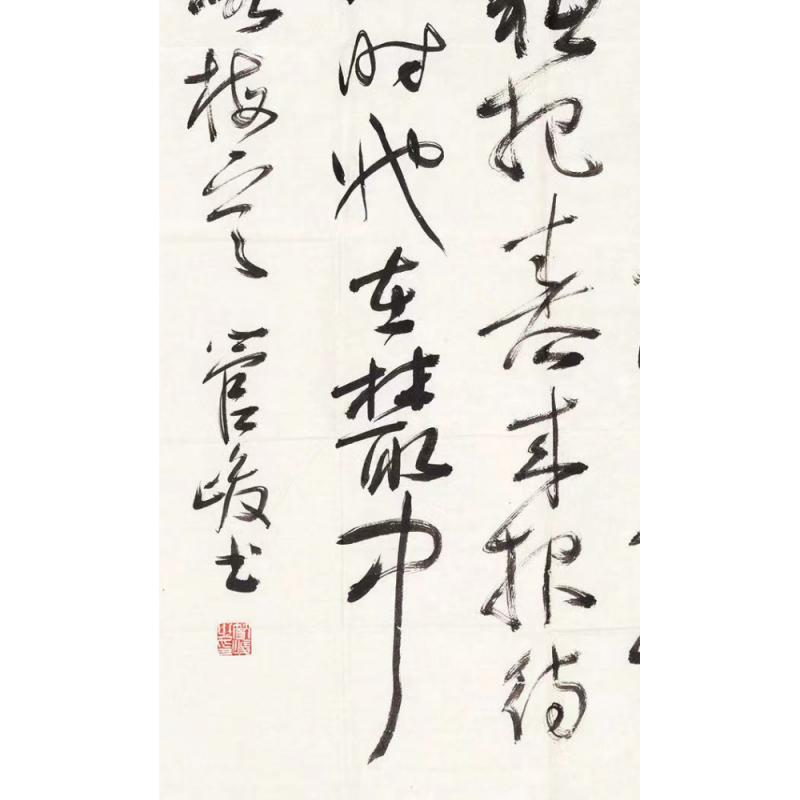 把春来报待
时她在叢中
梅
管峻书